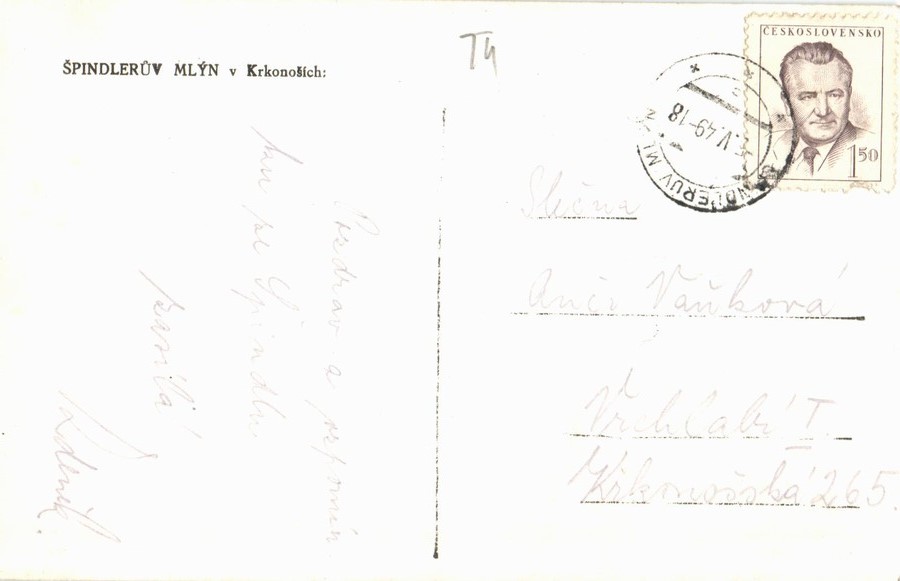 ŠPINDLERŮV MLÝN v Krkonoších:
T4
ČESKOSLOVENSKO
1 50
V.49-18
Pozdrav a vzpomín
ku ze Špindlu
zasílá
Zdeněk.
Slečna
Anči Vaňková
Vrchlabí I.
Krkonošská 265.